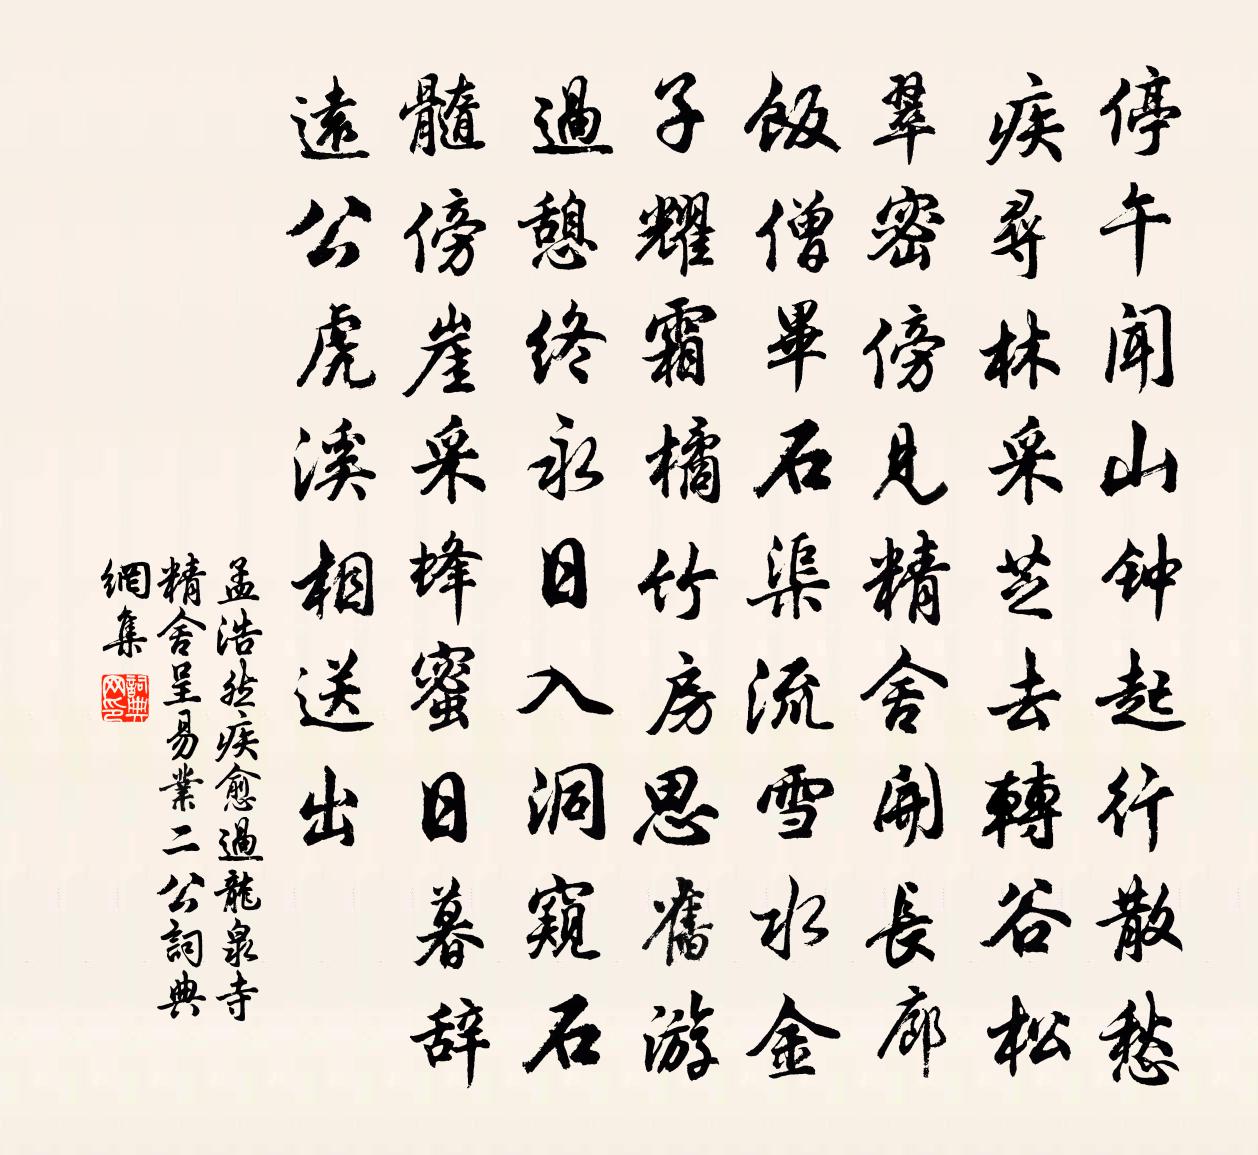 停午闻山钟起行散愁
疾尋林采芝去轉谷松
翠密傍見精舍開長廊
飯僧畢石渠流雪水金
子耀霜橘竹房思舊游
過憩终永日入洞窺石
髓傍崖采蜂蜜日暮辞
遠公虎溪相送出
孟浩然疾愈過龍泉寺
精舍呈易業二公詞典
網集
詞典网印